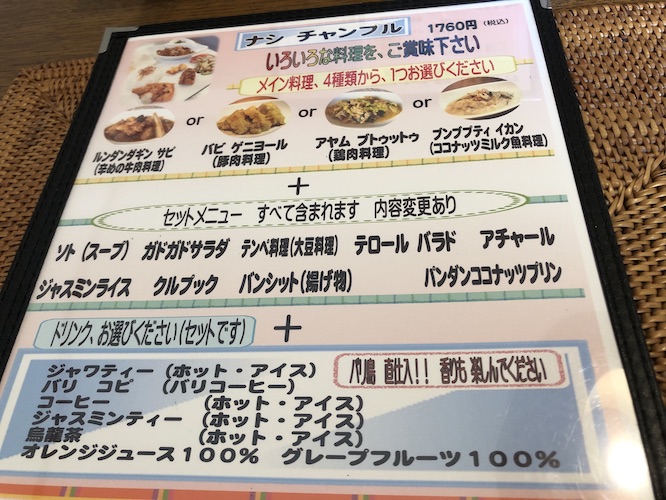 ナシ チャンプル 1760円 (税込)
いろいろな料理を、ご賞味下さい
メイン料理、4種類から、1つお選びください
or or or
ルンダンダギン サピ
(辛めの牛肉料理)
バビ ゲニヨール
(豚肉料理)
アヤム ブトゥットゥ
(鶏肉料理)
ブンブプティ イカン
(ココナッツミルク魚料理)
+
セットメニュー すべて含まれます 内容変更あり
ソト (スープ) ガドガドサラダ テンペ料理(大豆料理) テロール バラド アチャール
ジャスミンライス クルプック パンシット(揚げ物) パンダンココナッツプリン
ドリンク、お選びください(セットです) +
ジャワティー (ホット・アイス)
バリ コピ (バリコーヒー)
コーヒー (ホット・アイス)
ジャスミンティー (ホット・アイス)
烏龍茶 (ホット・アイス)
オレンジジュース100% グレープフルーツ100%
バリ島 直仕入!! 香りも 楽しんでください